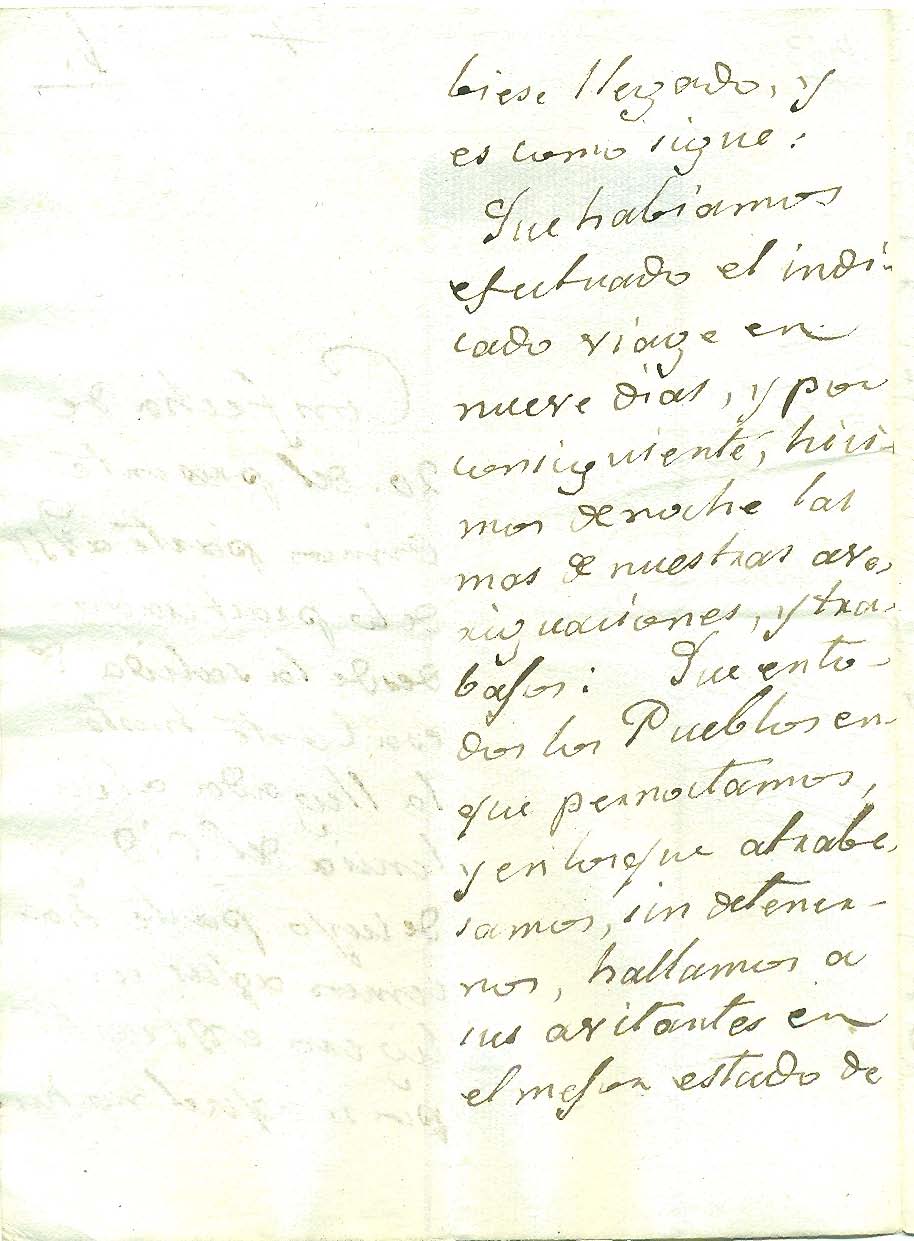 biese llegado, y
es como sigue:
Que habiamos
efectuado el indi-
cado viage en
nueve dias, y por
consiguiente, hici-
mos de noche las
mas de nuestras ave-
riguaciones, y tra-
bajos: Que en to-
dos los Pueblos en-
que pernoctamos,
y en los que atrabe-
samos, sin detener-
nos, hallamos a
sus avitantes en
el mejor estado de